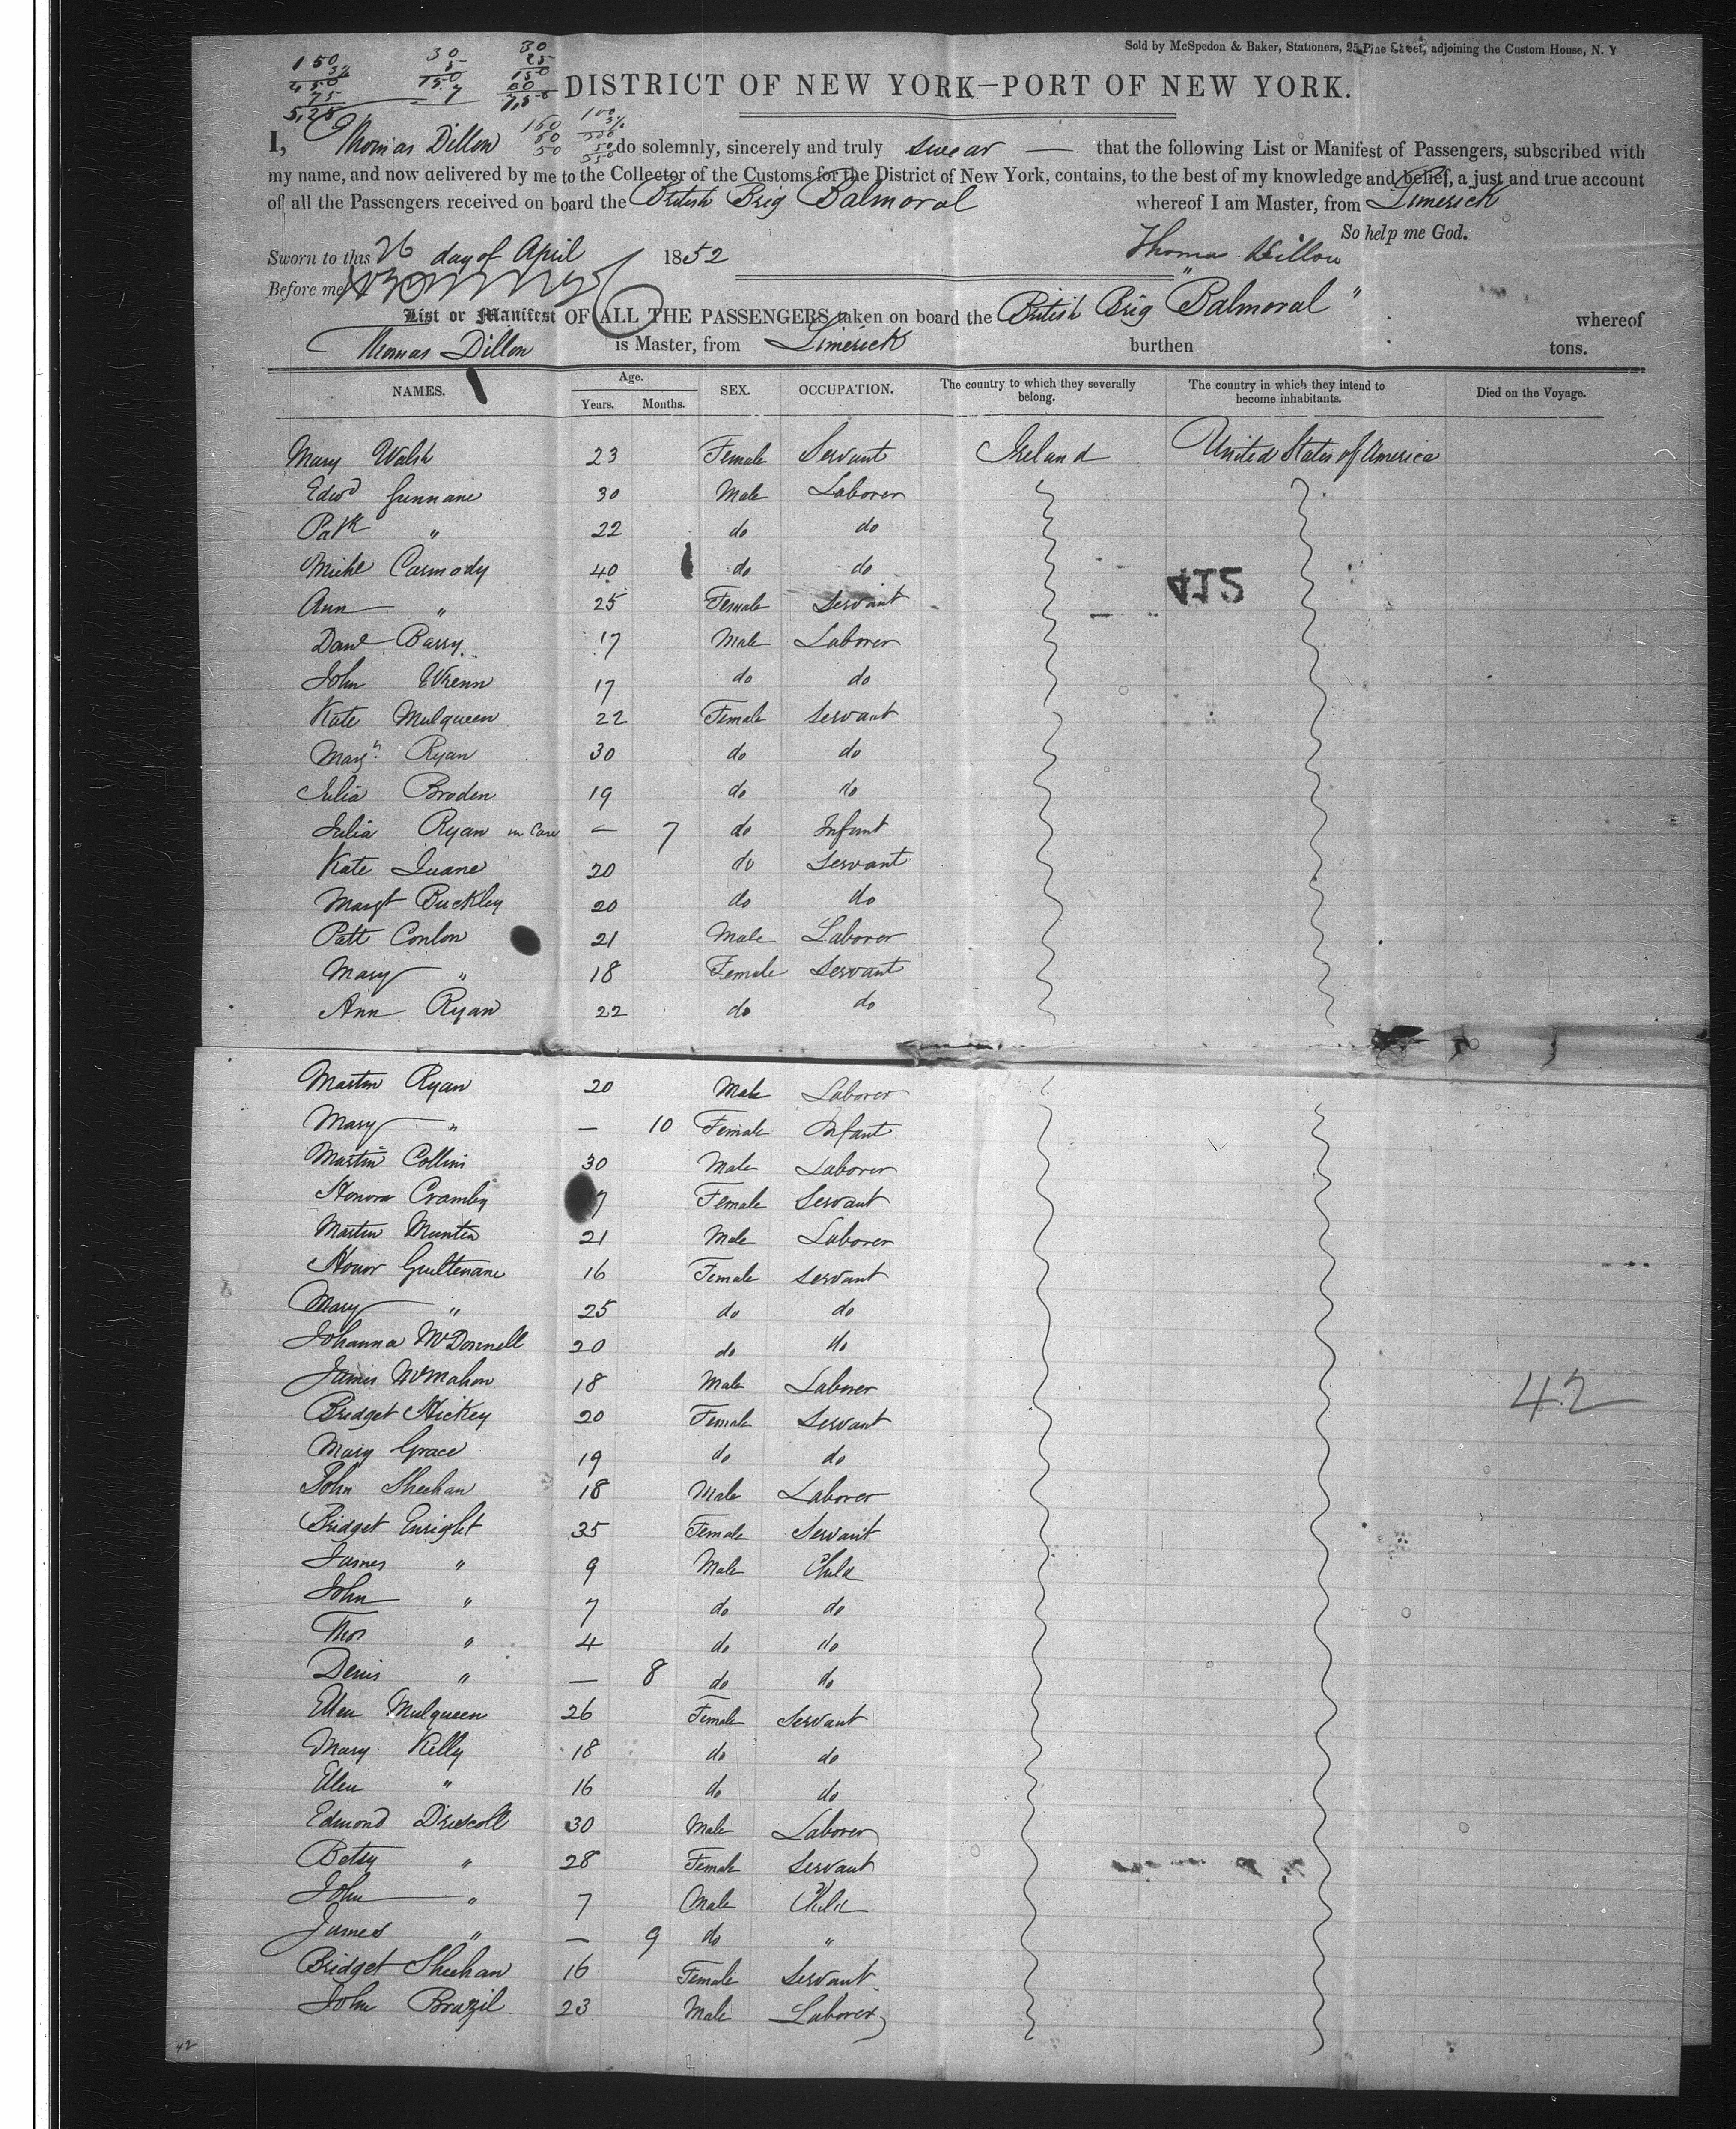 Sold by McSpedon & Baker, Stationers, 25 Pine Street, adjoining the Custom House, N. Y
150 30 30
3½ 5 25
450 150 150
75 7 60
5,25 7,5
DISTRICT OF NEW YORK—PORT OF NEW YORK.
I, Thomas Dillon do solemnly, sincerely and truly swear — that the following List or Manifest of Passengers, subscribed with
my name, and now delivered by me to the Collector of the Customs for the District of New York, contains, to the best of my knowledge and belief, a just and true account
of all the Passengers received on board the British Brig Balmoral whereof I am Master, from Limerick
So help me God.
Sworn to this 26 day of April 1852 Thomas Dillon
Before me
List or Manifest OF ALL THE PASSENGERS taken on board the British Brig "Balmoral" whereof
Thomas Dillon is Master, from Limerick burthen tons.
NAMES. Age. Years. Months. SEX. OCCUPATION. The country to which they severally belong. The country in which they intend to become inhabitants. Died on the Voyage.
Mary Walsh 23 Female Servant Ireland United States of America
Edwd Gunnane 30 Male Laborer
Patk " 22 do do
Michl Carmody 40 do do
415
Ann " 25 Female Servant
Danl Barry 17 Male Laborer
John Wrenn 17 do do
Kate Mulqueen 22 Female Servant
Margt Ryan 30 do do
Julia Broden 19 do do
Julia Ryan in Care — 7 do Infant
Kate Duane 20 do Servant
Margt Buckley 20 do do
Patt Conlon 21 Male Laborer
Mary " 18 Female Servant
Ann Ryan 22 do do
Martin Ryan 20 Male Laborer
Mary " — 10 Female Infant
Martin Collins 30 Male Laborer
Honora 7 Female Servant
Martin 21 Male Laborer
Honor Guiltenane 16 Female Servant
Mary " 25 do do
Johanna McDonnell 20 do do
James McMahon 18 Male Laborer
42
Bridget Hickey 20 Female Servant
Mary Grace 19 do do
John Sheehan 18 Male Laborer
Bridget Enright 35 Female Servant
James " 9 Male Child
John " 7 do do
Thos " 4 do do
Denis " — 8 do do
Ellen Mulqueen 26 Female Servant
Mary Kelly 18 do do
Ellen " 16 do do
Edmond Driscoll 30 Male Laborer
Betsy " 28 Female Servant
John " 7 Male Child
James " — 9 do "
Bridget Sheehan 16 Female Servant
John Brazil 23 Male Laborer
42